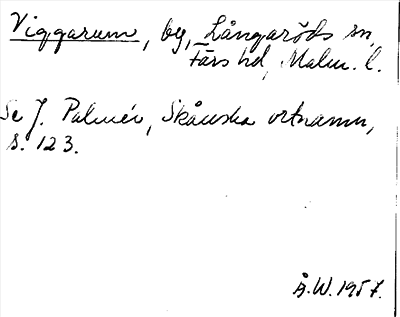 Viggarum, by, Långaröds sn,
Färs hd, Malm. l.
Se J. Palmér, Skånska ortnamn,
s. 123.
Å.W. 1957.